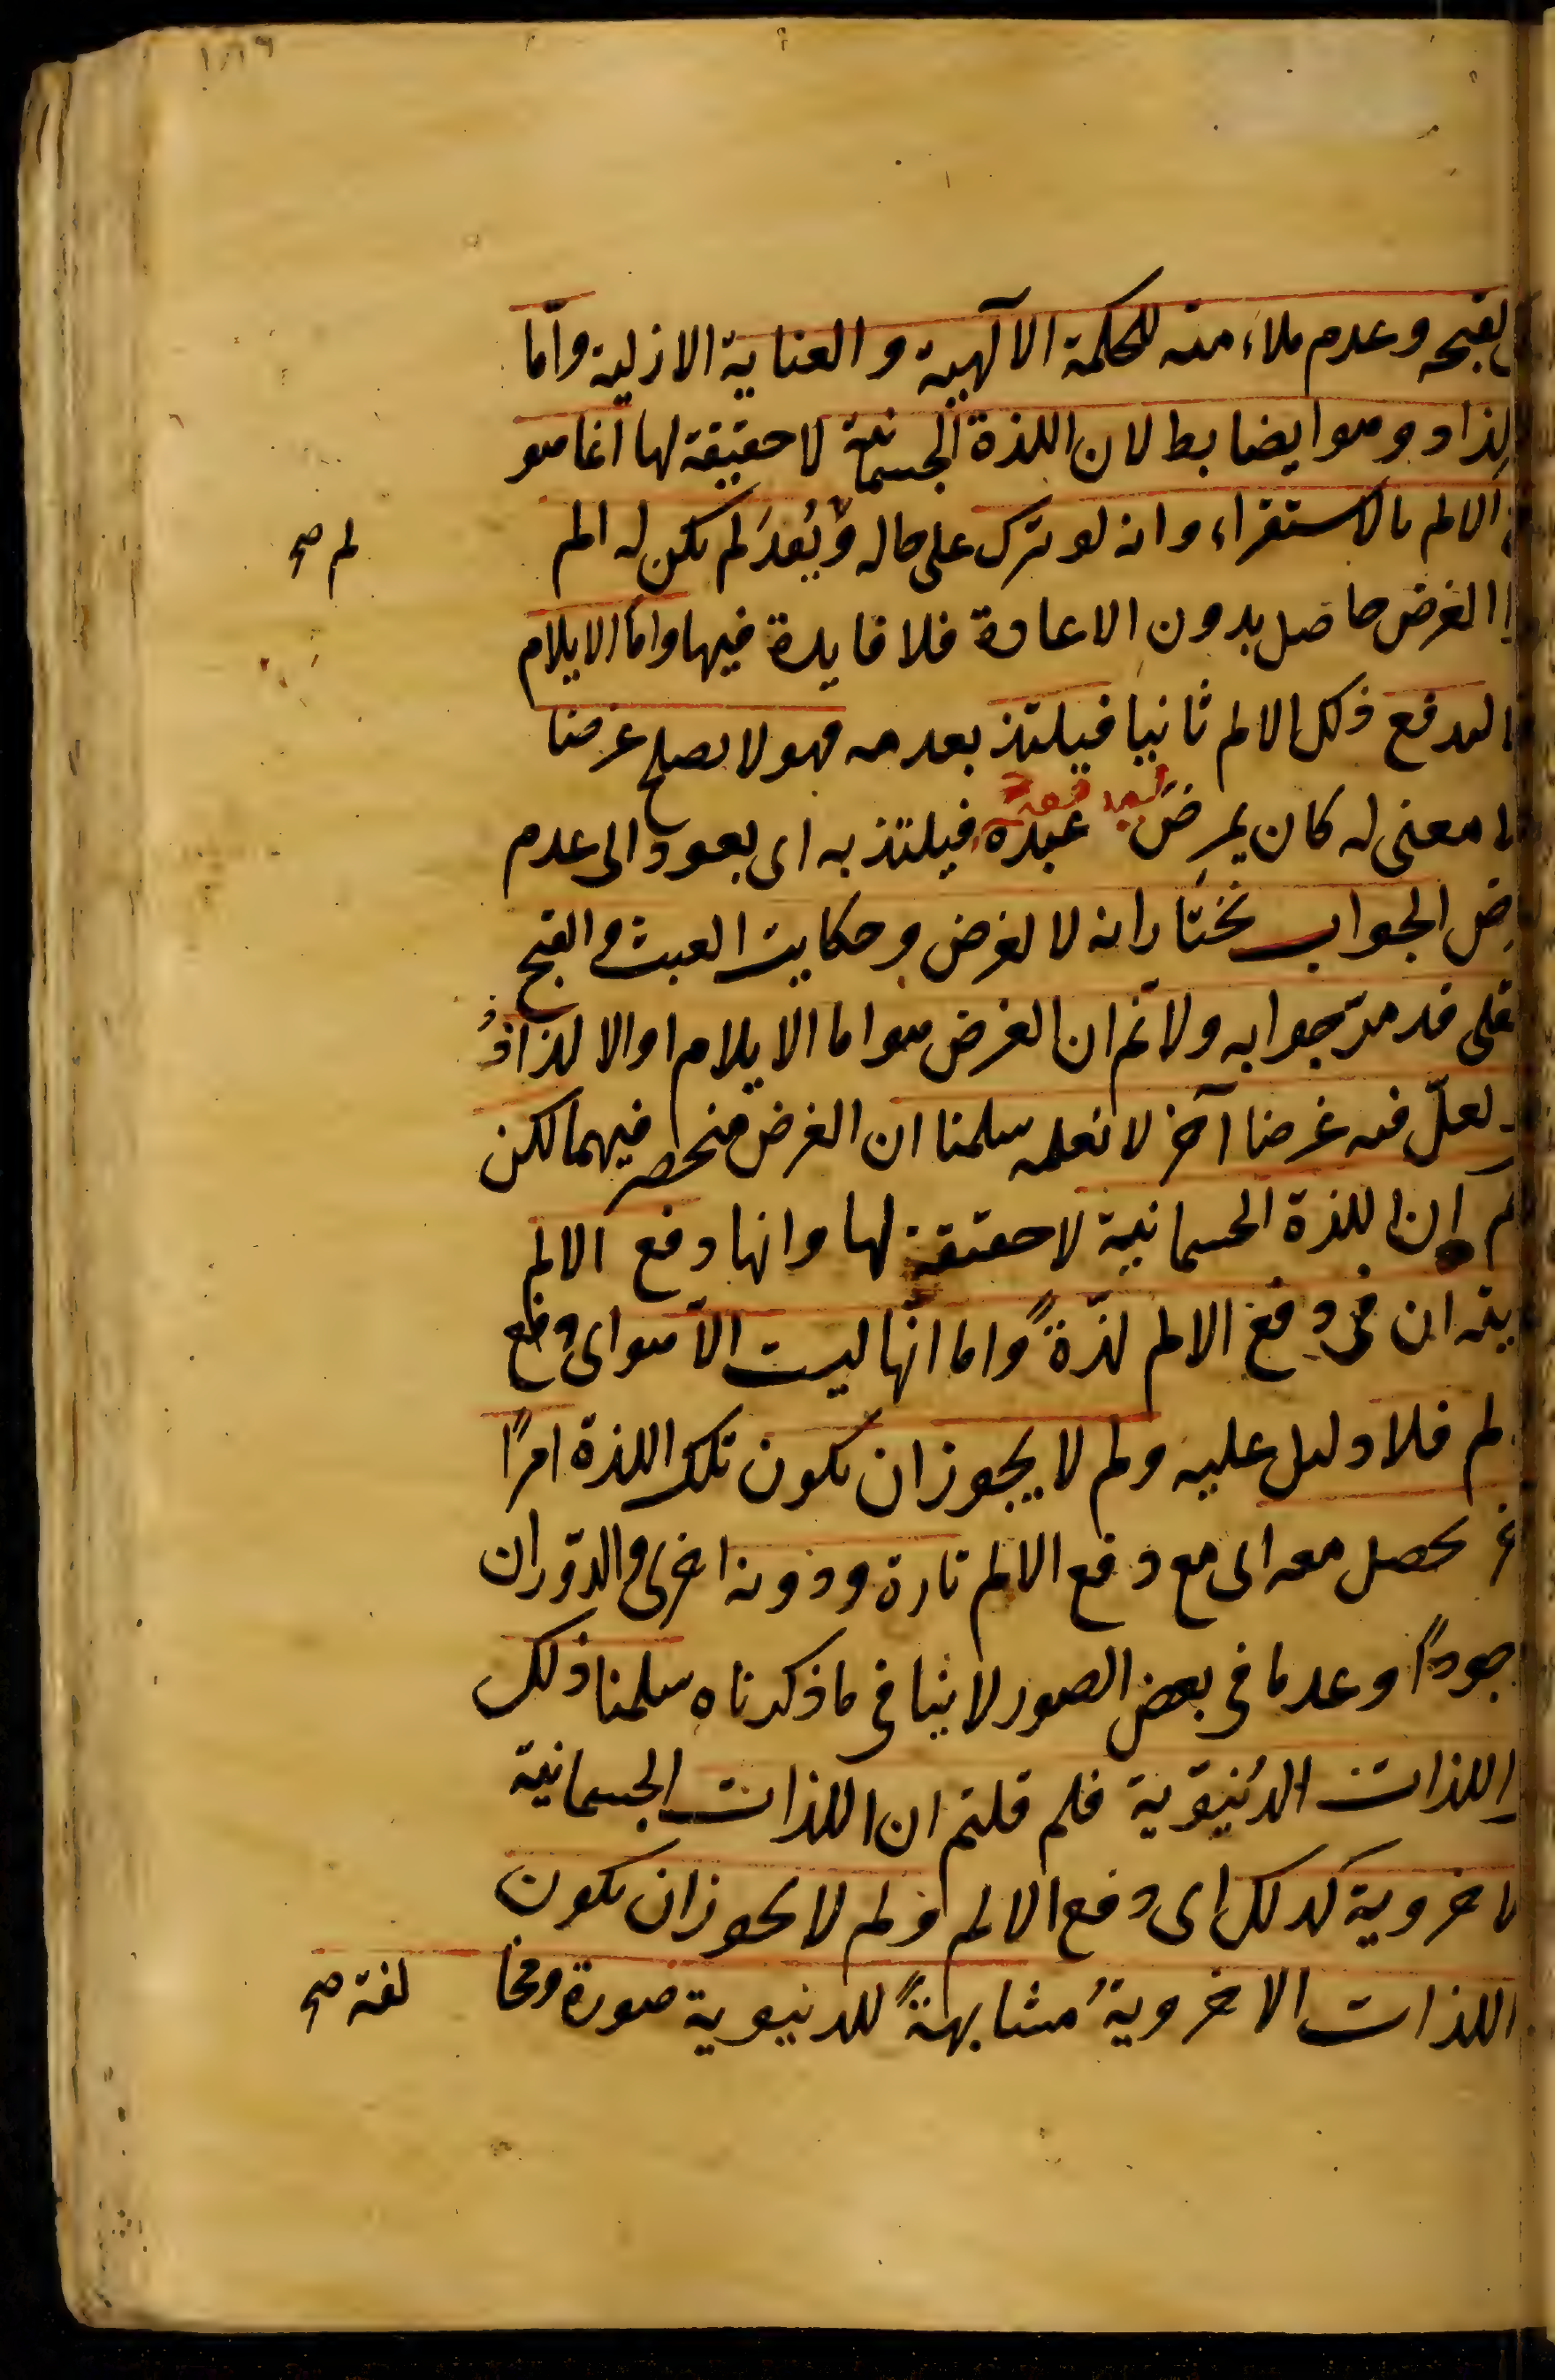 لقبحه وعدم ملاءمته للحكمة الالٓهية والعناية الازلية واما
لذاد وهو ايضا بط لان اللذة الجسمانية لا حقيقة لها انما هو
الالم بالاستقراء وانه لو ترك على حاله ولم يُعدَ لم يكن له الم
لم صح
الغرض حاصل بدون الاعادة فلا فايدة فيها واما الايلام
ليدفع ذلك الالم ثانيا فيلتذ بعدمه فهو لا يصلح غرضا
لا معنى له كان يمرض عبده فيلتذ به اى بعود الى عدم
ض الجواب نختار انه لا لغرض وحكاية العبث والقبح
عقلى قد مرّ جوابه ولا نم ان الغرض هو اما الايلام او الالذاذُ
لعلّ فيه غرضا آخر لا نعلمه سلمنا ان الغرض منحصر فيهما لكن
نم ان اللذة الجسمانية لا حقيقة لها وانها دفع الالم
يته ان فى دفع الالم لذّةً واما انّها ليست الّا هو اى دفع
لم فلا دليل عليه ولم لا يجوز ان يكون تلك اللذة امرًا
خر يحصل معه اى مع دفع الالم تارة ودونه اخرى والدّوران
جودًا وعدما فى بعض الصور لا ينافى ما ذكرناه سلمنا ذلك
اللذات الدُنيَوية فلم قلتم ان اللذات الجسمانية
لاخروية كذلك اى دفع الالم ولم لا يجوز ان يكون
اللذات الاخرويةُ مشابهةً للدنيوية صورة ومخا
لفة صح